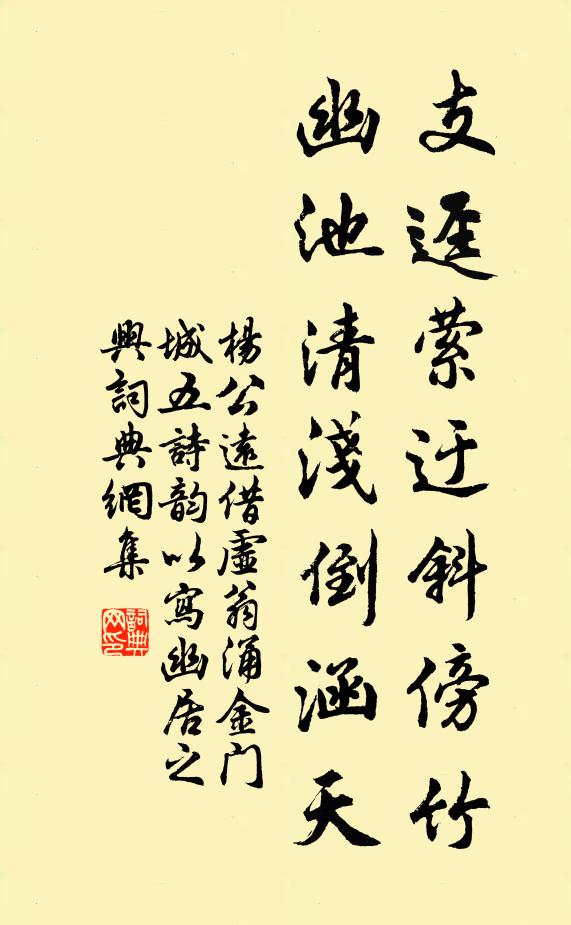 支逕萦迂斜傍竹
幽池清淺倒涵天
楊公遠借虛翁涌金門
城五詩韵以寫幽居之
興詞典網集
詞典
网印